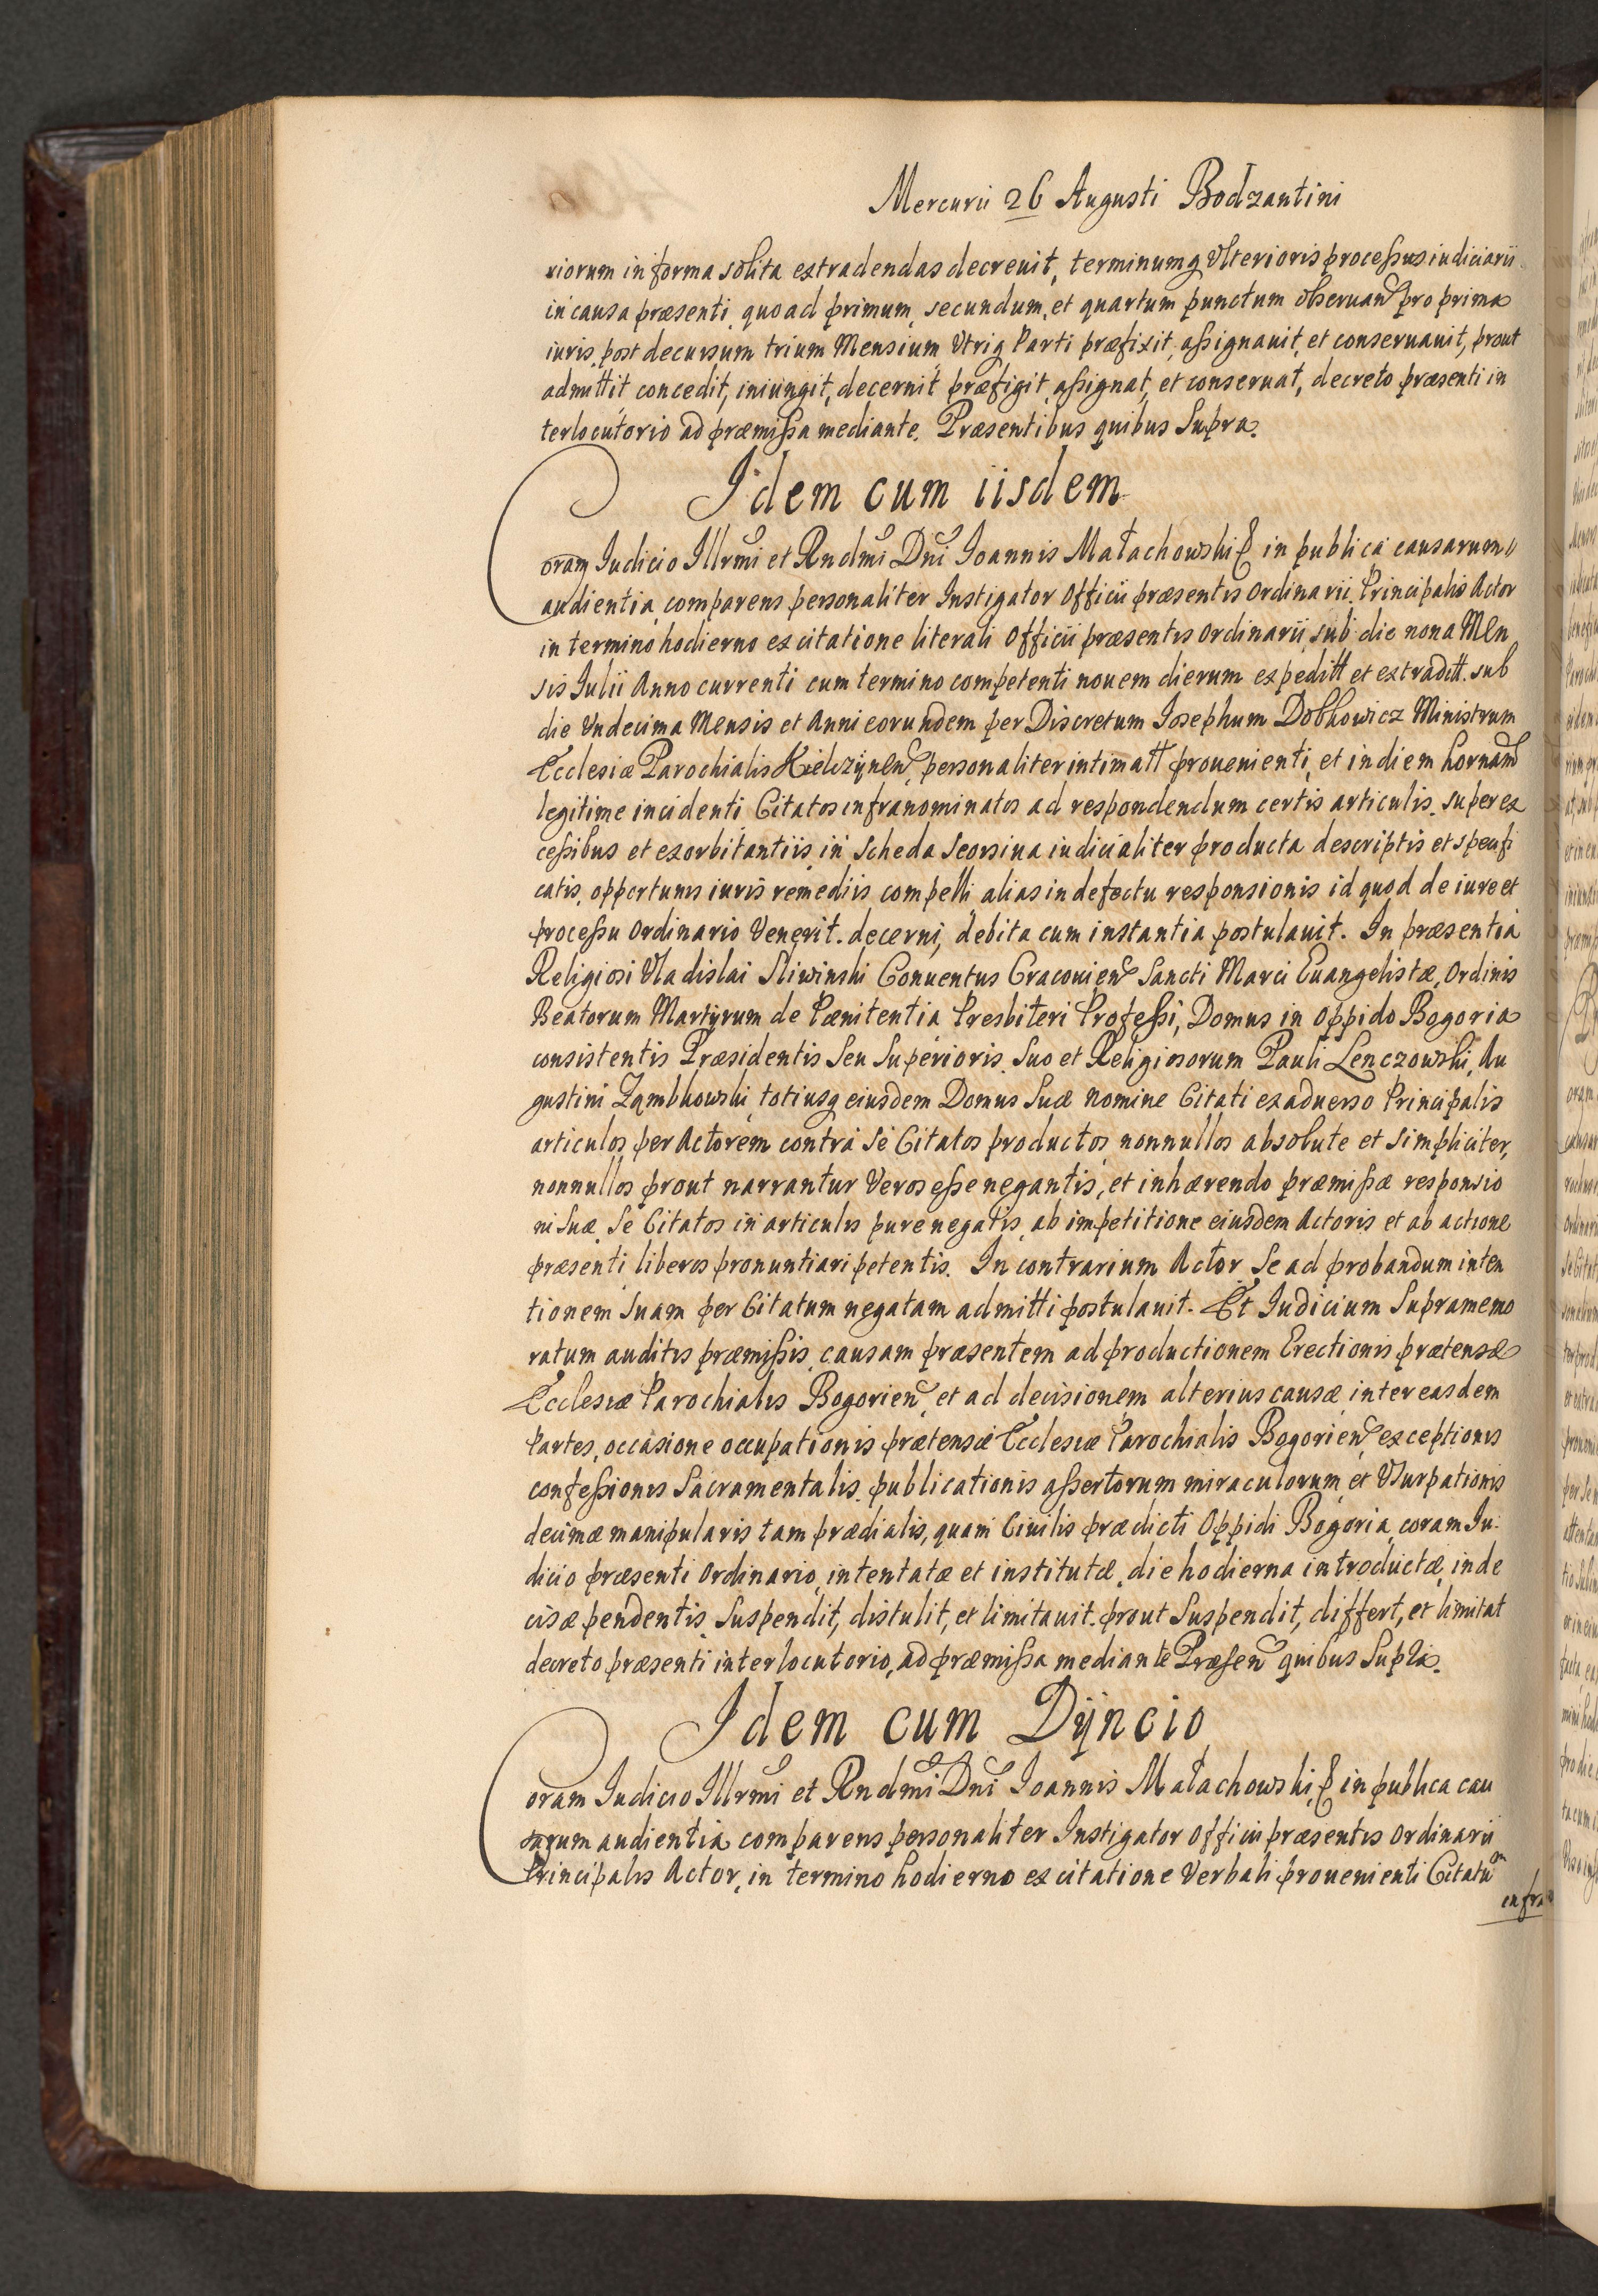 Mercurii 26 Augusti Bodzantini
riorum in forma solita extradendas decreuit, terminumq Vlterioris processus iudiciarii
in causa præsenti, quoad primum, secundum, et quartum punctum obseruand pro prima
iuris, post decursum trium Mensium, Vtriq Parti præfixit, assignauit, et conseruauit, prout
admittit, concedit, iniungit, decernit, præfigit, assignat, et conseruat, decreto præsenti in
terlocutorio ad præmissa mediante. Præsentibus quibus Supra.
Idem cum iisdem
Coram Iudicio Illrmi et Rndmi Dni Ioannis Małachowski in publica causarum
audientia, comparens personaliter Instigator Officii præsentis Ordinarii, Principalis Actor
in termino hodierno ex citatione literali Officii præsentis Ordinarii, sub die nona Men
sis Iulii Anno currenti cum termino competenti nouem dierum expeditt et extraditt. sub
die Vndecima Mensis et Anni eorundem per Discretum Iosephum Dobkowicz Ministrum
Ecclesiæ Parochialis Kielczynen personaliter intimatt prouenienti, et in diem hornam
legitime incidenti Citatos infranominatos ad respondendum certis articulis, super ex
cessibus et exorbitantiis in Scheda Seorsiua iudicialiter producta descriptis et specifi
catis, opportunis iuris remediis compelli alias in defectu responsionis id quod de iure et
processu Ordinario Venerit. decerni, debita cum instantia postulauit. In præsentia
Religiosi Vladislai Sliwinski Conuentus Cracouien Sancti Marci Euangelistæ, Ordinis
Beatorum Martyrum de Pænitentia Presbiteri Professi, Domus in Oppido Bogoria
consistentis Præsidentis Seu Superioris, Suo et Religiosorum Pauli Lenczowski, Au
gustini Ząmbkowski, totiusq eiusdem Domus Suæ Nomine Citati ex aduerso Principalis
articulos per Actorem contra Se Citatos productos, nonnullos absolute et Simpliciter,
nonnullos prout narrantur Veros esse negantis, et inhærendo præmissæ responsio
ni Suæ, Se Citatos in articulis pure negatis, ab impetitione eiusdem Actoris et ab actione
præsenti liberos pronuntiari petentis. In contrarium Actor Se ad probandum inten
tionem Suam per Citatum negatam admitti postulauit. Et Iudicium Supramemo
ratum auditis præmissis, causam præsentem ad productionem Erectionis prætensæ
Ecclesiæ Parochialis Bogorien et ad decisionem alterius causæ, inter easdem
Partes, occasione occupationis prætensæ Ecclesiæ Parochialis Bogorien exceptionis
confessionis Sacramentalis, publicationis assertorum miraculorum, et Vsurpationis
decimæ manipularis tam prædialis, quam Ciuilis prædicti Oppidi Bogoria, coram Iu
dicio præsenti Ordinario, intentatæ et institutæ, die hodierna introductæ, inde
cisæ pendentis, Suspendit, distulit, et limitauit. prout Suspendit, differt, et limitat
decreto præsenti interlocutorio, ad præmissa mediante Præsen quibus Supra.
Idem cum Dÿncio
Coram Iudicio Illrmi et Rndmi Dni Ioannis Małachowski, in publica cau
sarum audientia comparens personaliter Instigator Officii præsentis Ordinarii
Principalis Actor, in termino hodierno ex citatione Verbali prouenienti Citatum
infra